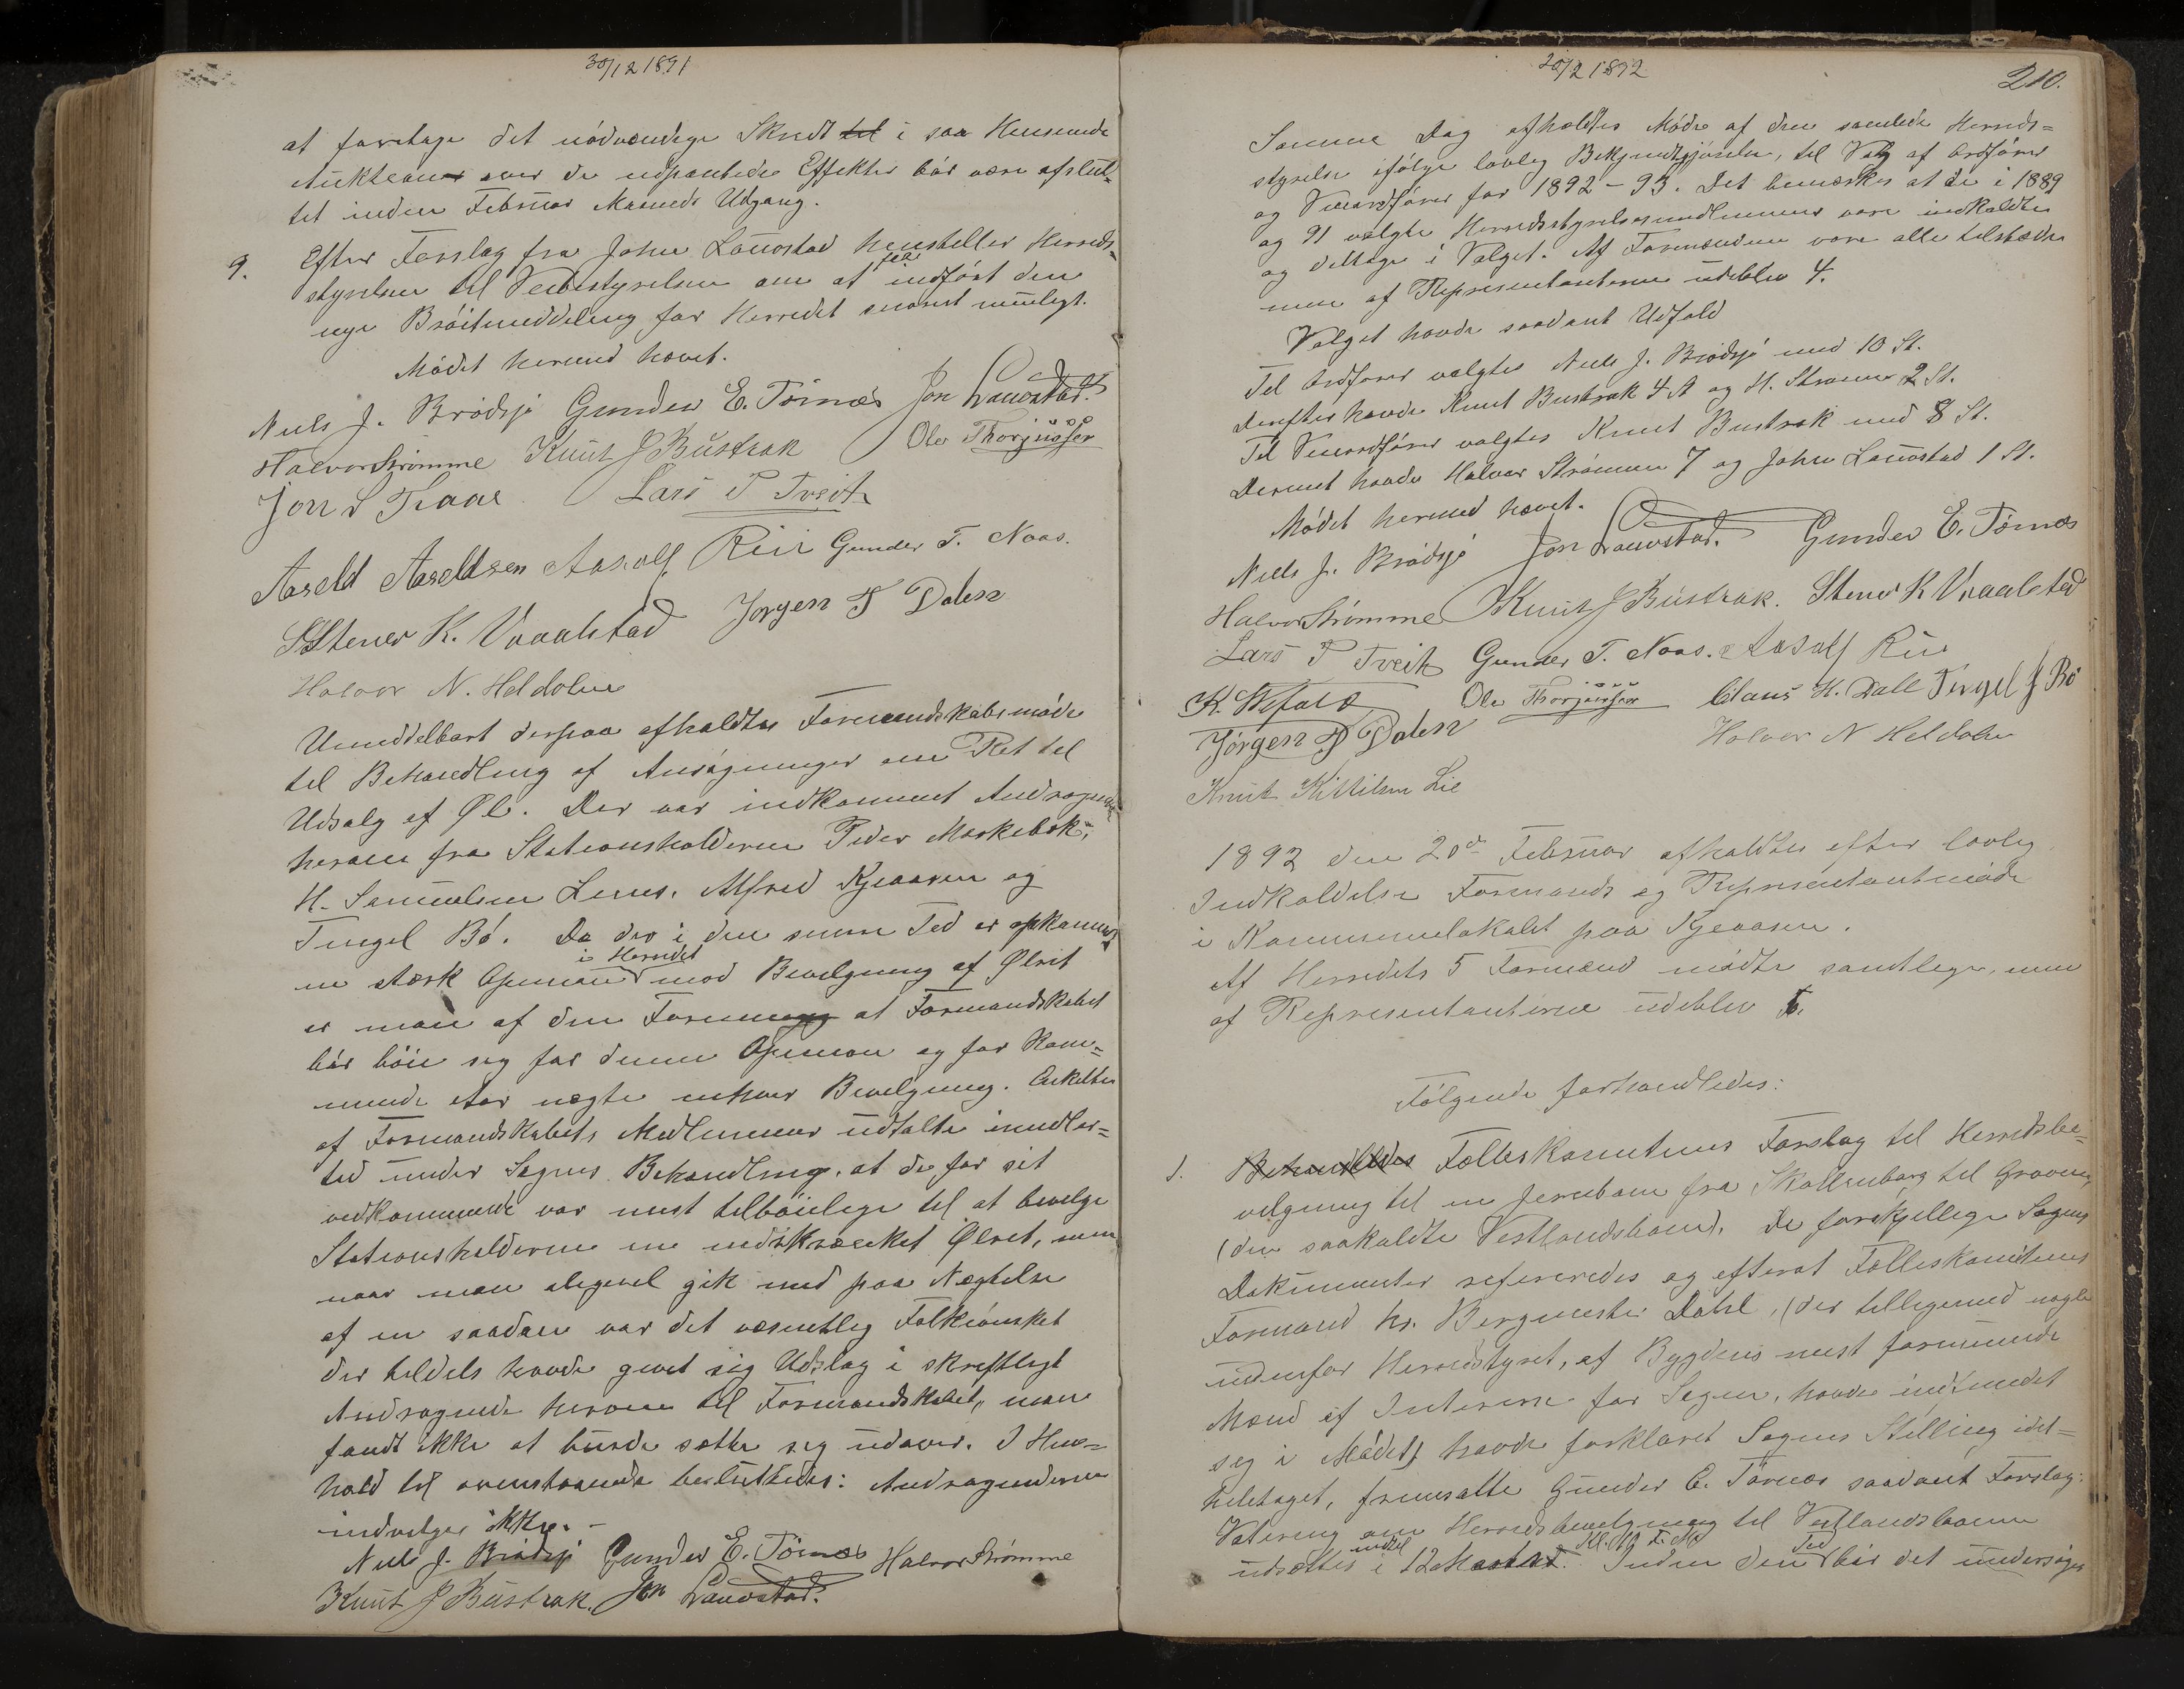 30/12 1891
at foretage det nödvendige Skridt til i saa Henseende
Auktion over de udpantede Effekter bör være afslut-
tet inden Februar Maaneds Udgang.
9. Efter Forslag fra John Lauvstad henstiller Herreds-
styrelsen til Veibestyrelsen om at faa indfört den
nye Bröitinddeling for Herredet snarest muligt.
Mödet hermed hævet.
Niels J. Brödsjö Gunder E. Törnes Jon Lauvstad.
Halvor Strömme Knut J Bustrak Ole Thorjussen
Jon S Traae Lars P Tveit
Aaseld Aaseldsen Aasolf Rui Gunder T. Naas.
Stener K. Vraalstad Jörgen T Dalen
Halvor N. Heldalen
Umiddelbart derpaa afholdtes Formandskabsmöde
til Behandling af Ansögninger om Ret til
Udsalg af Øl. Der var indkommet Andragende
herom fra Stationsholderne Peder Moskebæk,
H. Samuelsen Lunde, Alfred Kjeaasen og
Tengel Bö. Da der i den senere Tid er opkommet
en stærk Openion i Herredet mod Bevilgning af Ølret
er man af den Formening at Formandskabet
bör böie sig for denne Openion og for Kom-
mende Aar nægte enhver Bevilgning. Enkelte
af Formandskabets Medlemmer udtalte imidler-
tid under Sagens Behandling, at de for sit
vedkommende var mest tilböielige til at bevilge
Stationsholderne en indskrænket Ølret, men
naar man alligevel gik med paa Nægtelse
af en saadan var det væsentlig Folkeönsket
der tildels havde givet sig Udslag i skriftligt
Andragende herom til Formandskabet, man
fandt ikke at burde sætte sig udover. I Hen-
hold til ovenstaaende besluttedes: Andragenderne
indvilges ikke.
Niels J. Brödsjö Gunder E. Törnes Halvor Strömme
Knut J Bustrak. Jon Lauvstad.
20/2 1892
210.
Samme Dag afholdtes Möde af den samlede Herreds-
styrelse ifölge lovlig Bekjendtgjörelse, til Valg af Ordförer
og Viceordförer for 1892-93. Det bemærkes at de i 1889
og 91 valgte Herredsstyrelsesmedlemmer vare indkaldte
og deltoge i Valget. Af Formændene vare alle tilstæde
men af Repræsentanterne udeblev 4.
Valget havde saadant Udfald
Til Ordförer valgtes Niels J. Brödsjö med 10 St.
Derefter havde Knut Bustrak 4 St og H. Strömme 2 St.
Til Viceordförer valgtes Knut Bustrak med 8 St.
Dernest havde Halvor Strömme 7 og John Lauvstad 1 St.
Mödet hermed hævet.
Niels J. Brödsjö Jon Lauvstad. Gunder E. Törnes
Halvor Strömme Knut J Bustrak. Stener K Vraalstad
Lars P Tveit Gunder T. Naas. Aasolf Rui
K. Ole Thorjussen Claus H. Dall Tengel J Bö
Jörgen T Dalen Halvor N Heldalen
Knut Kittilsen Lie
1892 den 20de Februar afholdtes efter lovlig
Indkaldelse Formands og Repræsentantmöde
i Kommunelokalet paa Kjeaasen.
Af Herredets 5 Formænd mödte samtlige, men
af Repræsentanterne udeblev 5.
Fölgende forhandledes:
1. Behandledes Fælleskomiteens Forslag til Herredsbe-
vilgning til en Jernbane fra Skollenborg til Graven,
(den saakaldte Vestlandsbane). De forskjellige Sagens
Dokumenter refereredes og efterat Fælleskomiteens
Formand hr. Bergmester Dahl, (der tilligemed nogle
udenfor Herredsstyret, af Bygdens mest formuende
Mænd af Interesse for Sagen, havde indfundet
sig i Mödet) havde forklaret Sagens Stilling idet-
heletaget, fremsatte Gunder E. Törnes saadant Forslag:
Votering om Herredsbevilgning til Vestlandsbanen
udsættes indtil i 12 Marts Kl. 10 F.M. Inden den Tid bör det undersöges